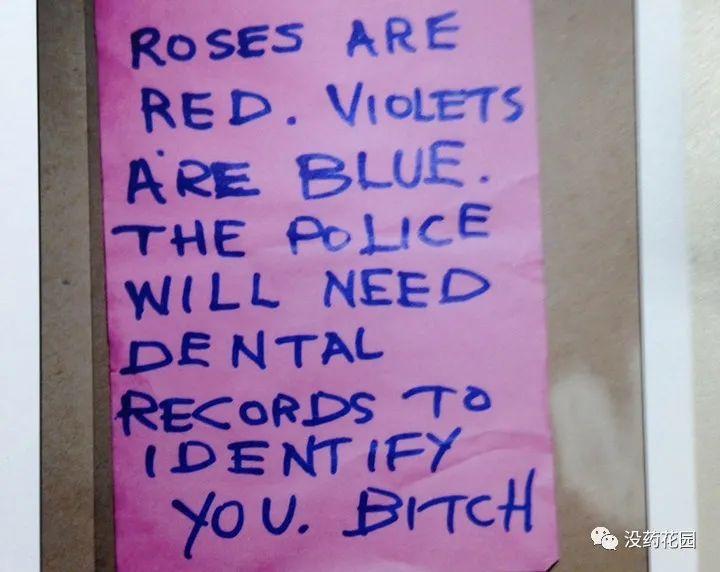 ROSES ARE
RED. VIOLETS
ARE BLUE.
THE POLICE
WILL NEED
DENTAL
RECORDS TO
IDENTIFY
YOU. BITCH
没药花园